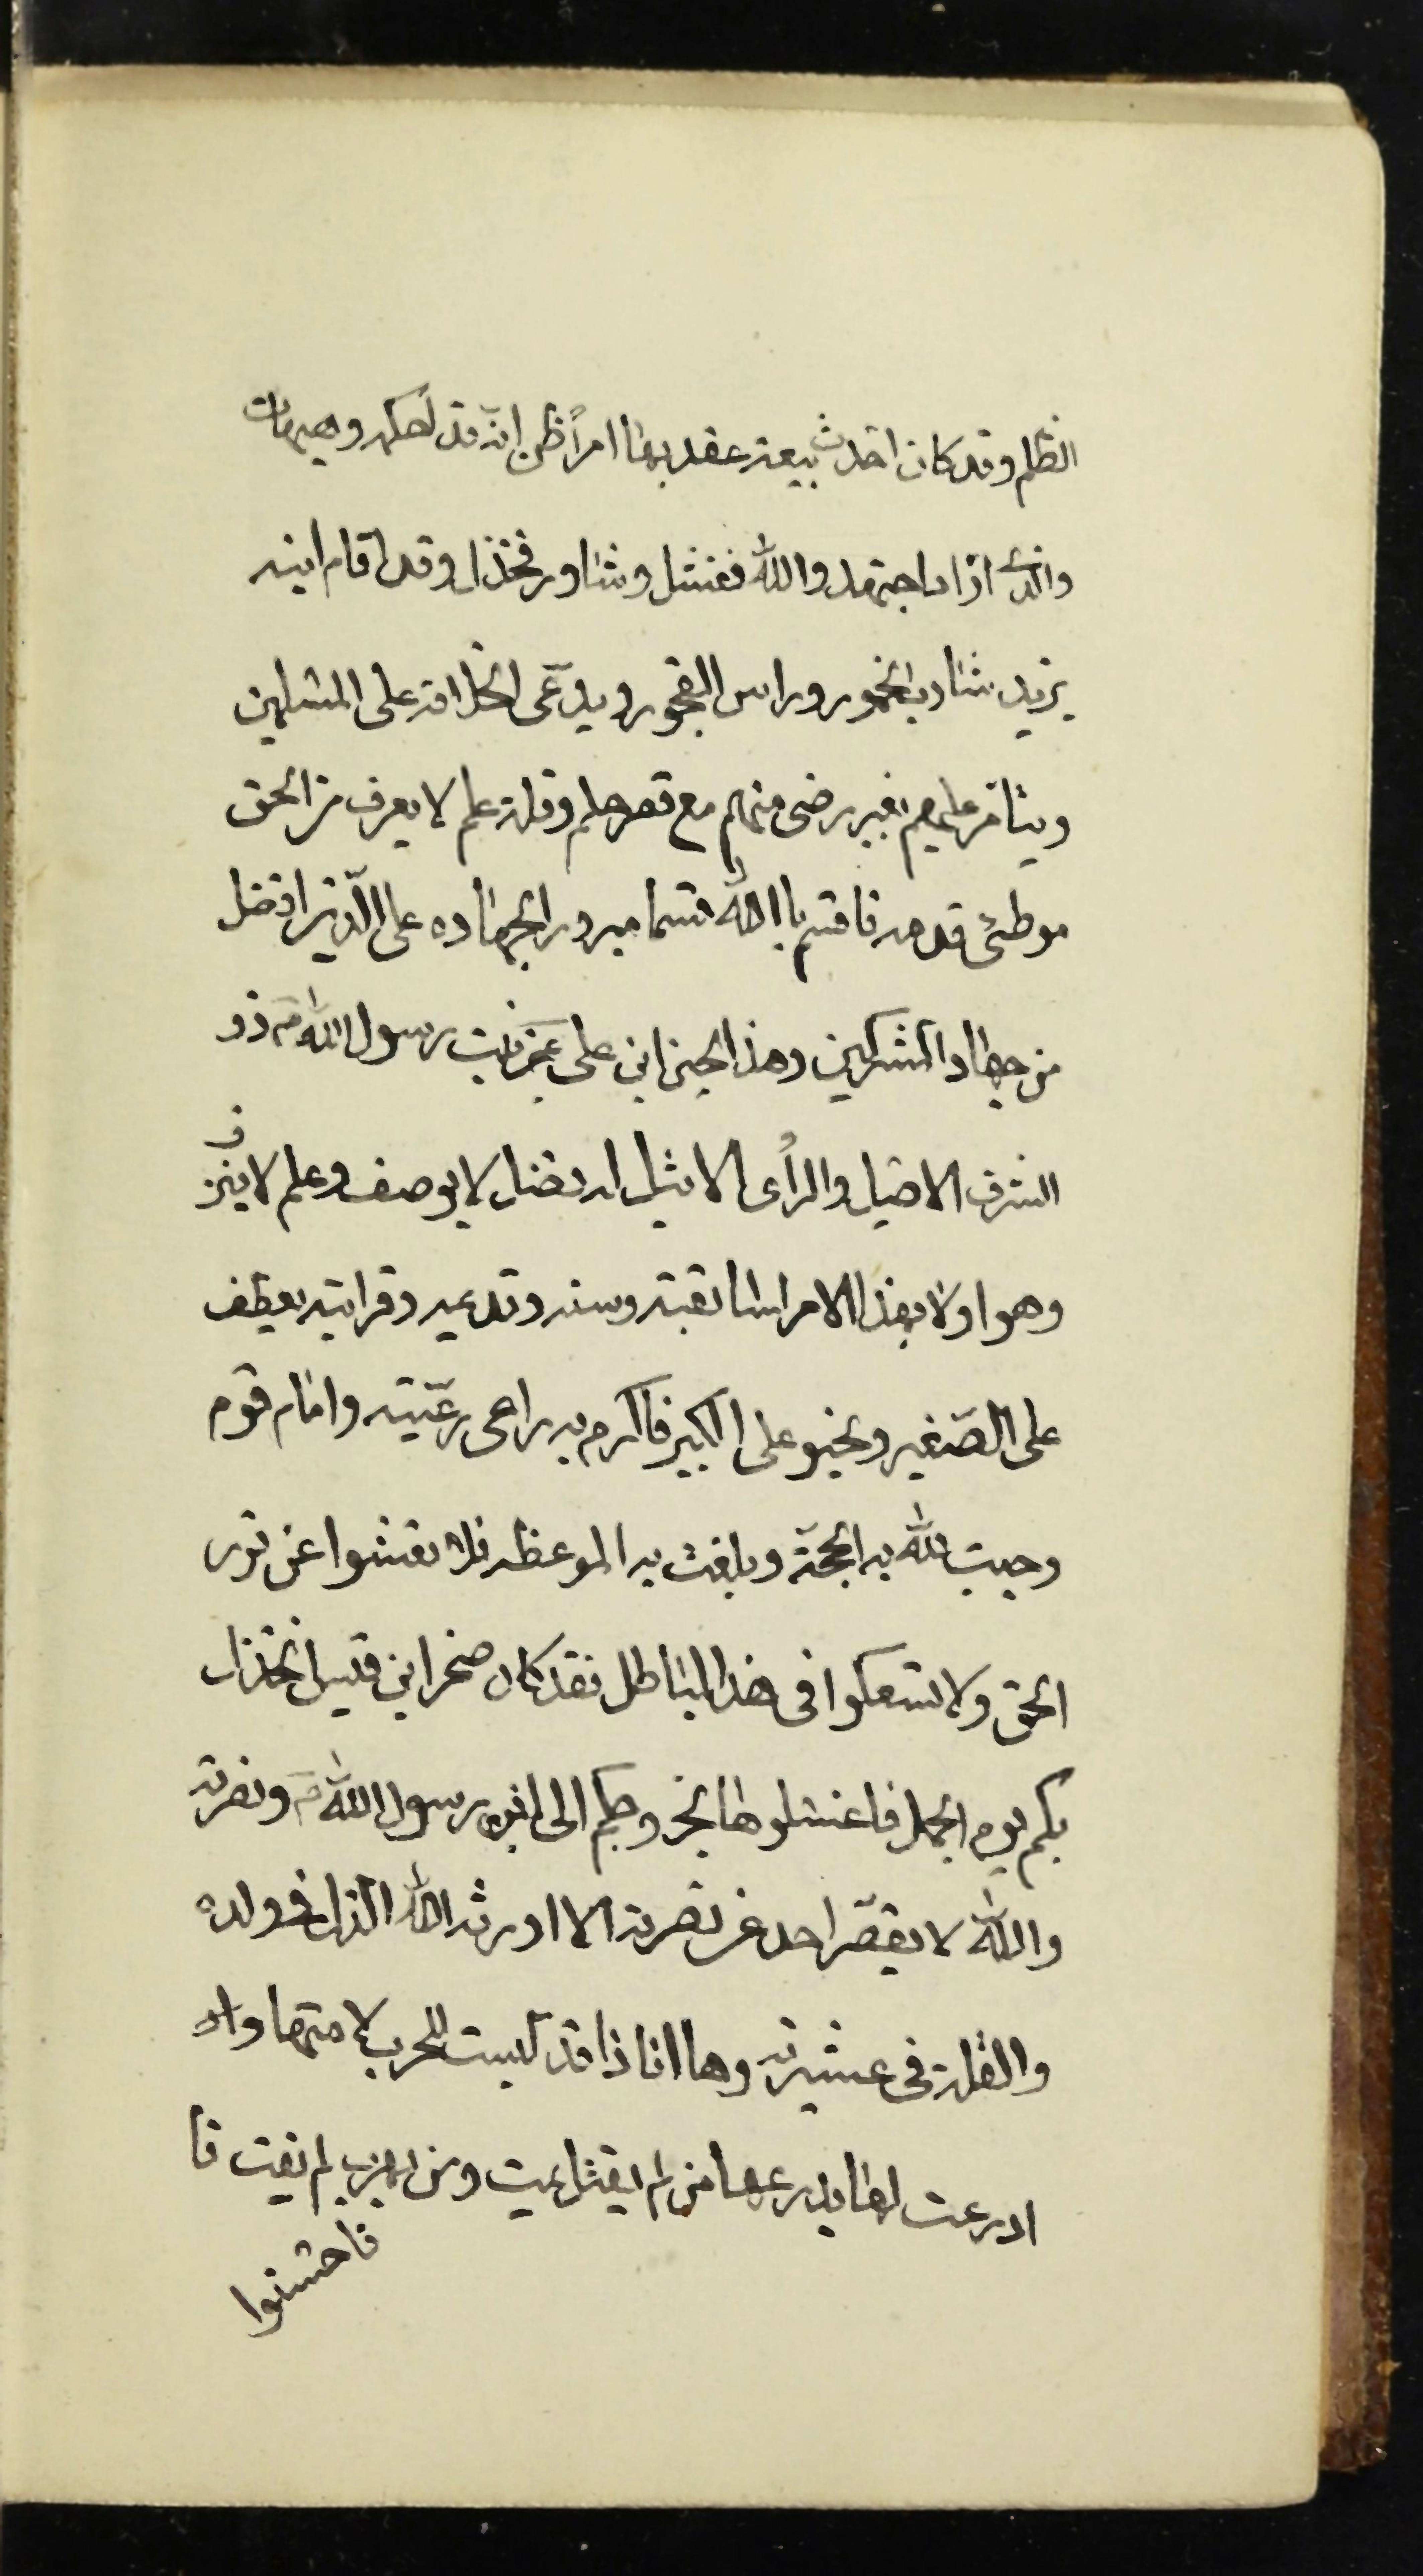 الظلم وقد كان احدث بيعة عقد بها امراً ظن انّه قد احكمه وهيهات
والذى اراد اجتهد والله ففشل وشاور فخذل وقد اقام ابنه
يزيد شارب الخمور وراس الفجور ويدّعى الخلافة على المسلمين
ويتامر عليهم بغير رضى منهم مع قصر حلم وقلة علم لا يعرف من الحق
موطئ قدمه فاقسم باالله قسما مبرورا لجهاده على الدّين افضل
من جهاد المشركين وهذا الحسين ابن على بن بنت رسول الله ص ذو
الشرف الاصيل والرأى الاثيل له فضل لا يوصف وعلم لا ينزف
وهو اولا بهذا الامر لسابقته وسنه وقدميه وقرابته يعطف
على الصّغير ويحنو على الكبير فاكرم به راعى رعّيته وامام قوم
وجبت لله به الحجّة وبلغت به الموعظه فلا تعشوا عن نور
الحق ولا تسعكوا فى هذا الباطل فقد كان صخر ابن قيس انخذل
بكم يوم الجمل فاغسلوها بخروجكم الى ابن رسول الله ص ونصرته
والله لا يقصّر احد عن نصرته الا اورثه الله الذل فى ولده
والقلة فى عشيرته وها انا ذا قد لبست للحرب لامتها و
ادرعت لها بدرعها من لم يقتل يميت ومن يهرب لم يفت فا
فاحسنوا